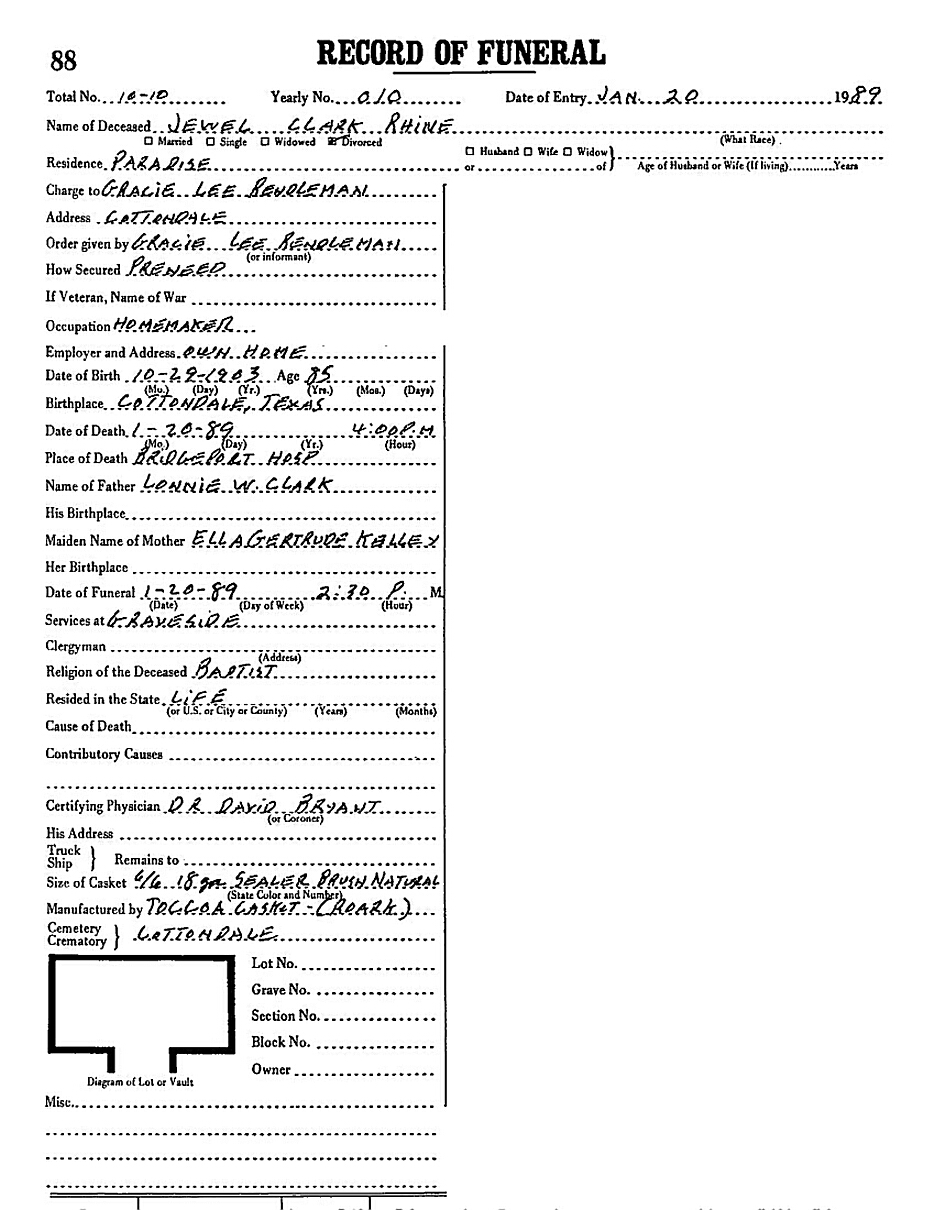 88
RECORD OF FUNERAL
Total No. 10-10 Yearly No. 010 Date of Entry JAN. 20 1989
Name of Deceased JEWEL CLARK RHINE (What Race)
☐ Married ☐ Single ☐ Widowed ☒ Divorced
Residence PARADISE ☐ Husband ☐ Wife ☐ Widow or of } Age of Husband or Wife (If living) Years
Charge to GRACIE LEE RENDLEMAN
Address COTTONDALE
Order given by GRACIE LEE RENDLEMAN
(or informant)
How Secured PRENEED
If Veteran, Name of War
Occupation HOMEMAKER
Employer and Address OWN HOME
Date of Birth 10-29-1903 Age 85
(Mo.) (Day) (Yr.) (Yrs.) (Mos.) (Days)
Birthplace COTTONDALE, TEXAS
Date of Death 1-20-89 4:00 P.M
(Mo.) (Day) (Yr.) (Hour)
Place of Death BRIDGEPORT HOSP
Name of Father LONNIE W. CLARK
His Birthplace
Maiden Name of Mother ELLA GERTRUDE KELLEY
Her Birthplace
Date of Funeral 1-20-89 2:30 P. M.
(Date) (Day of Week) (Hour)
Services at GRAVESIDE
Clergyman
(Address)
Religion of the Deceased BAPTIST
Resided in the State LIFE
(or U.S. or City or County) (Years) (Months)
Cause of Death
Contributory Causes
Certifying Physician DR DAVID BRYANT
(or Coroner)
His Address
Truck
Ship } Remains to
Size of Casket 6/6 18 ga SEALER BRUSH NATURAL
(State Color and Number)
Manufactured by TOCCOA CASKET - (ROARK)
Cemetery
Crematory } COTTONDALE
Lot No.
Grave No.
Section No.
Block No.
Owner
Diagram of Lot or Vault
Misc.